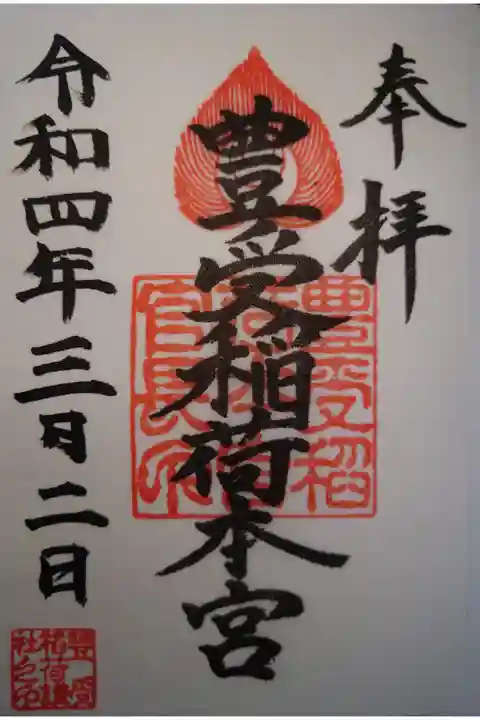 奉拝
豊受稲荷本宮
令和四年三月二日